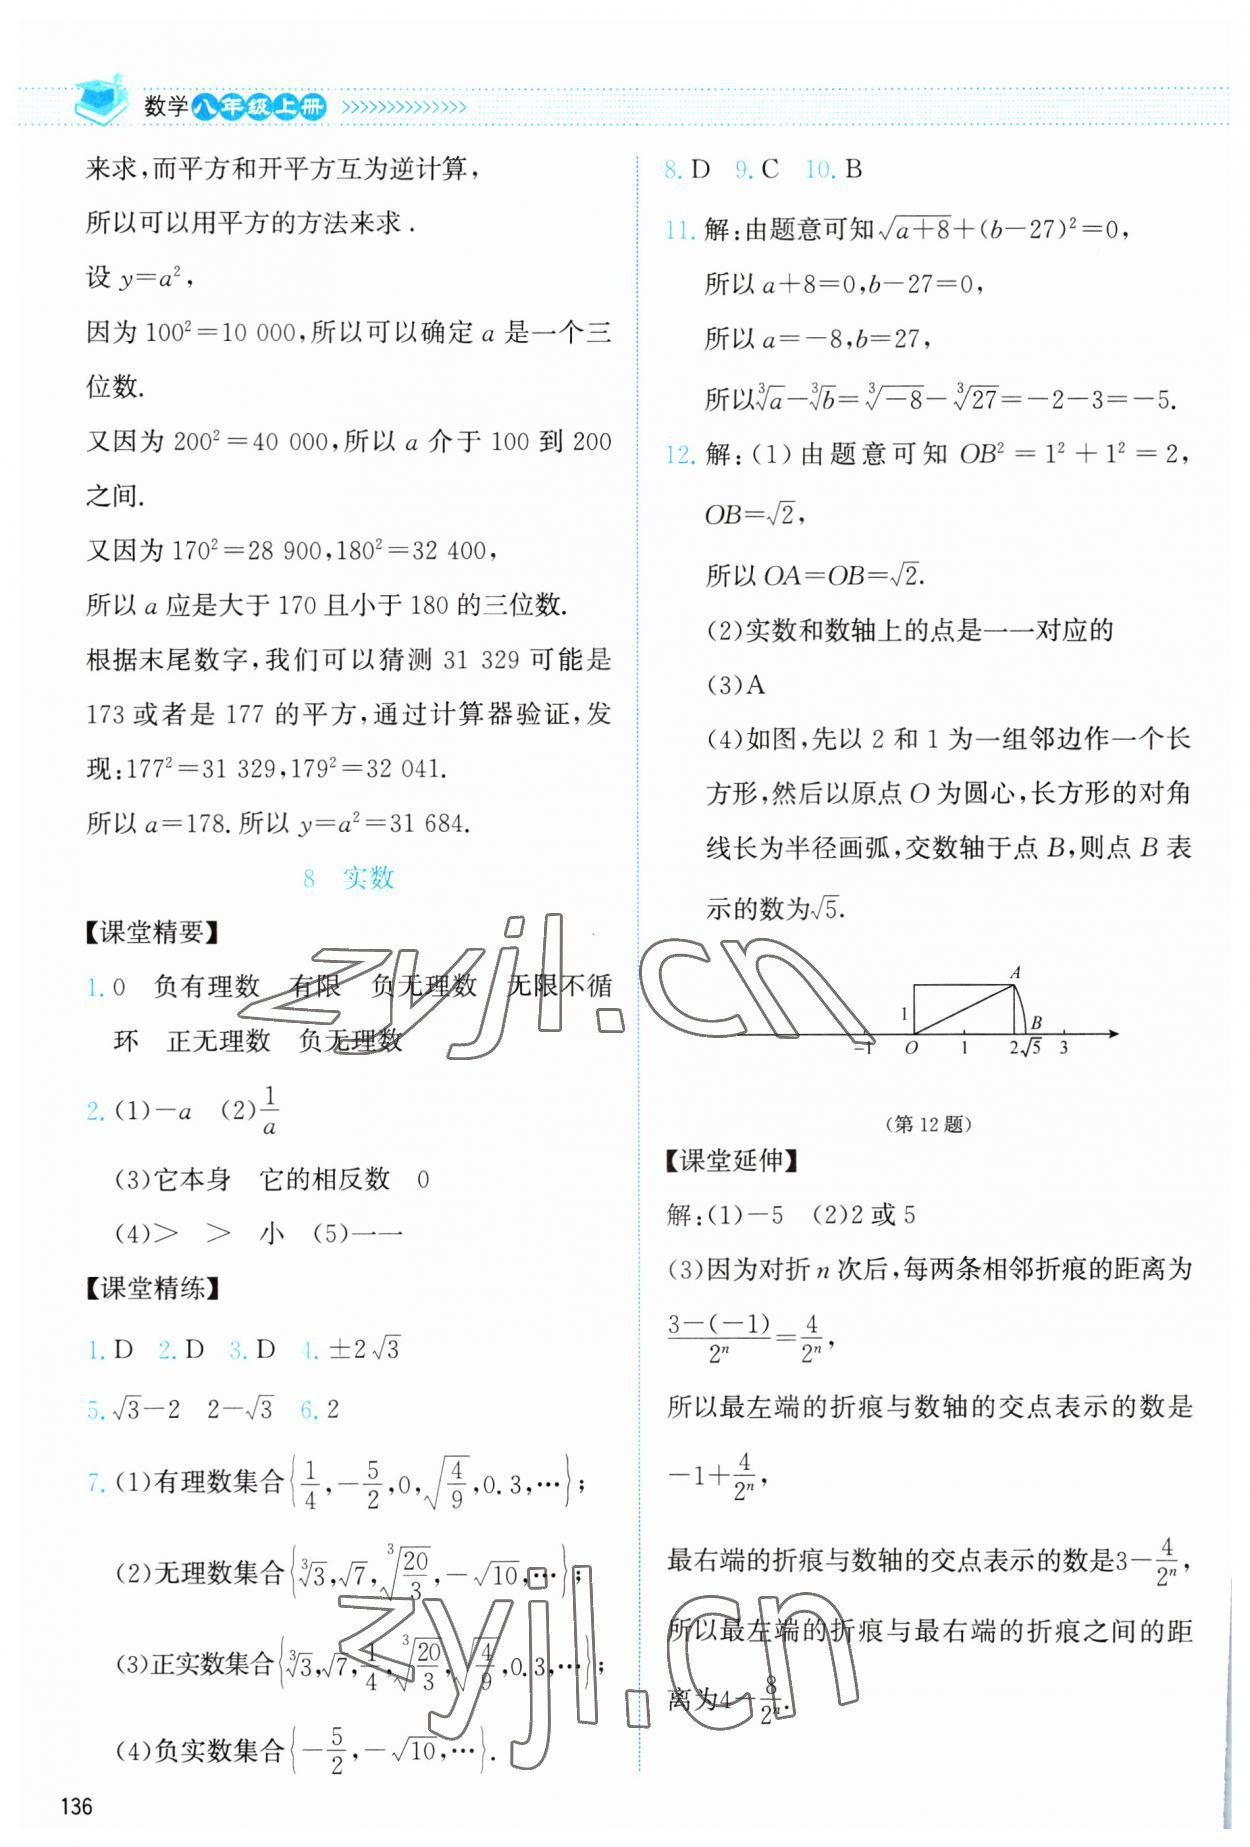 数学八年级上册
来求,而平方和开平方互为逆计算,
所以可以用平方的方法来求.
设 y=a²,
因为 100²=10 000,所以可以确定 a 是一个三
位数.
又因为 200²=40 000,所以 a 介于 100 到 200
之间.
又因为 170²=28 900,180²=32 400,
所以 a 应是大于 170 且小于 180 的三位数.
根据末尾数字,我们可以猜测 31 329 可能是
173 或者是 177 的平方,通过计算器验证,发
现:177²=31 329,179²=32 041.
所以 a=178.所以 y=a²=31 684.
8 实数
【课堂精要】
1.0 负有理数 有限 负无理数 无限不循
环 正无理数 负无理数
2.(1)-a (2)1/a
(3)它本身 它的相反数 0
(4)> > 小 (5)一一
【课堂精练】
1.D 2.D 3.D 4.±2√3
5.√3-2 2-√3 6.2
7.(1)有理数集合{1/4,-5/2,0,√(4/9),0.3,…};
(2)无理数集合{∛3,√7,∛(20/3),-√10,…};
(3)正实数集合{∛3,√7,1/4,∛(20/3),√(4/9),0.3,…};
(4)负实数集合{-5/2,-√10,…}.
136
8.D 9.C 10.B
11.解:由题意可知√(a+8)+(b-27)²=0,
所以 a+8=0,b-27=0,
所以 a=-8,b=27,
所以∛a-∛b=∛(-8)-∛27=-2-3=-5.
12.解:(1)由题意可知 OB²=1²+1²=2,
OB=√2,
所以 OA=OB=√2.
(2)实数和数轴上的点是一一对应的
(3)A
(4)如图,先以 2 和 1 为一组邻边作一个长
方形,然后以原点 O 为圆心,长方形的对角
线长为半径画弧,交数轴于点 B,则点 B 表
示的数为√5.
A
1
B
-1 O 1 2 √5 3
(第 12 题)
【课堂延伸】
解:(1)-5 (2)2 或 5
(3)因为对折 n 次后,每两条相邻折痕的距离为
(3-(-1))/2ⁿ=4/2ⁿ,
所以最左端的折痕与数轴的交点表示的数是
-1+4/2ⁿ,
最右端的折痕与数轴的交点表示的数是3-4/2ⁿ,
所以最左端的折痕与最右端的折痕之间的距
离为4-8/2ⁿ.
zyjl.cn
zyjl.cn